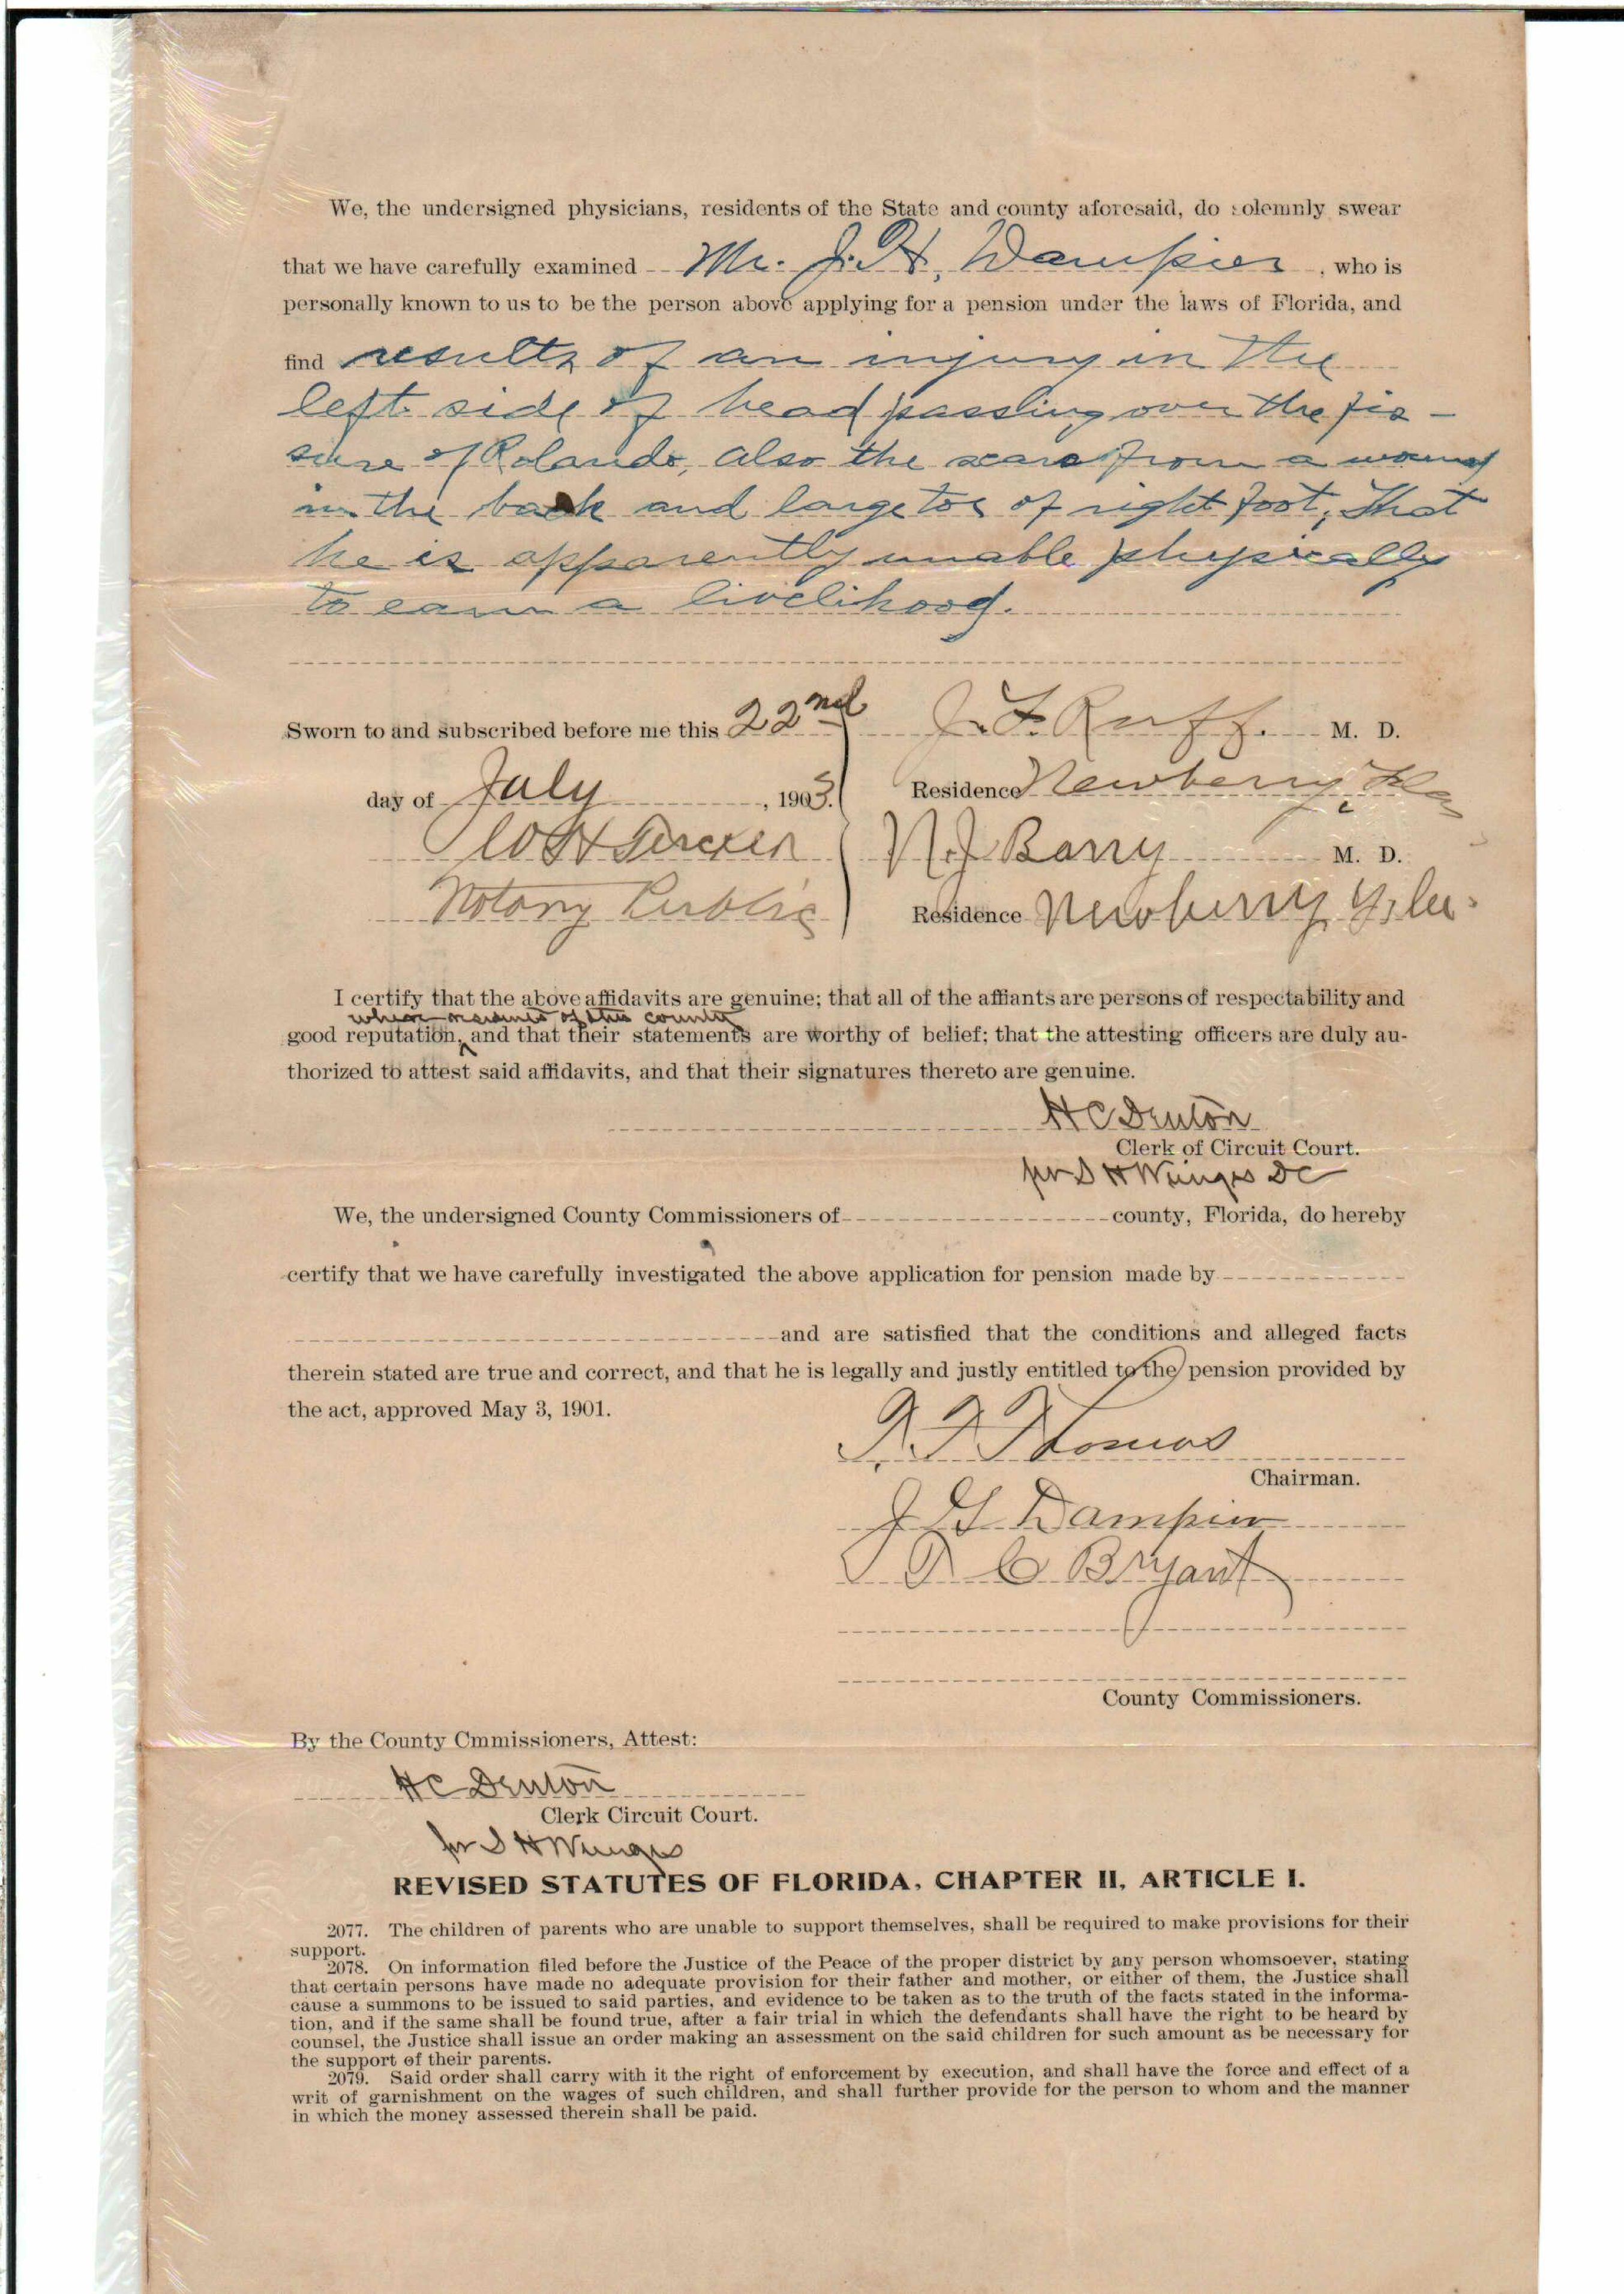 We, the undersigned physicians, residents of the State and county aforesaid, do solemnly swear
that we have carefully examined Mr. J. H. Dampier, who is
personally known to us to be the person above applying for a pension under the laws of Florida, and
find results of an injury in the
left side of head passing over the fis-
sure of Rolando, also the scars from a wound
in the back and large toe of right foot; that
he is apparently unable physically
to earn a livelihood.
Sworn to and subscribed before me this 22nd
day of July, 1903.
Notary Public
J. F. Ruff. M. D.
Residence Newberry, Fla
N. J. Barry M. D.
Residence Newberry, Fla.
I certify that the above affidavits are genuine; that all of the affiants are persons of respectability and
of this county
good reputation, and that their statements are worthy of belief; that the attesting officers are duly au-
thorized to attest said affidavits, and that their signatures thereto are genuine.
H C Denton
Clerk of Circuit Court.
per S H Wienges DC
We, the undersigned County Commissioners of county, Florida, do hereby
certify that we have carefully investigated the above application for pension made by
and are satisfied that the conditions and alleged facts
therein stated are true and correct, and that he is legally and justly entitled to the pension provided by
the act, approved May 3, 1901.
Thomas
Chairman.
J G Dampier
C Bryant
County Commissioners.
By the County Cmmissioners, Attest:
H C Denton
Clerk Circuit Court.
per S H Wienges
REVISED STATUTES OF FLORIDA, CHAPTER II, ARTICLE I.
2077. The children of parents who are unable to support themselves, shall be required to make provisions for their
support.
2078. On information filed before the Justice of the Peace of the proper district by any person whomsoever, stating
that certain persons have made no adequate provision for their father and mother, or either of them, the Justice shall
cause a summons to be issued to said parties, and evidence to be taken as to the truth of the facts stated in the informa-
tion, and if the same shall be found true, after a fair trial in which the defendants shall have the right to be heard by
counsel, the Justice shall issue an order making an assessment on the said children for such amount as be necessary for
the support of their parents.
2079. Said order shall carry with it the right of enforcement by execution, and shall have the force and effect of a
writ of garnishment on the wages of such children, and shall further provide for the person to whom and the manner
in which the money assessed therein shall be paid.